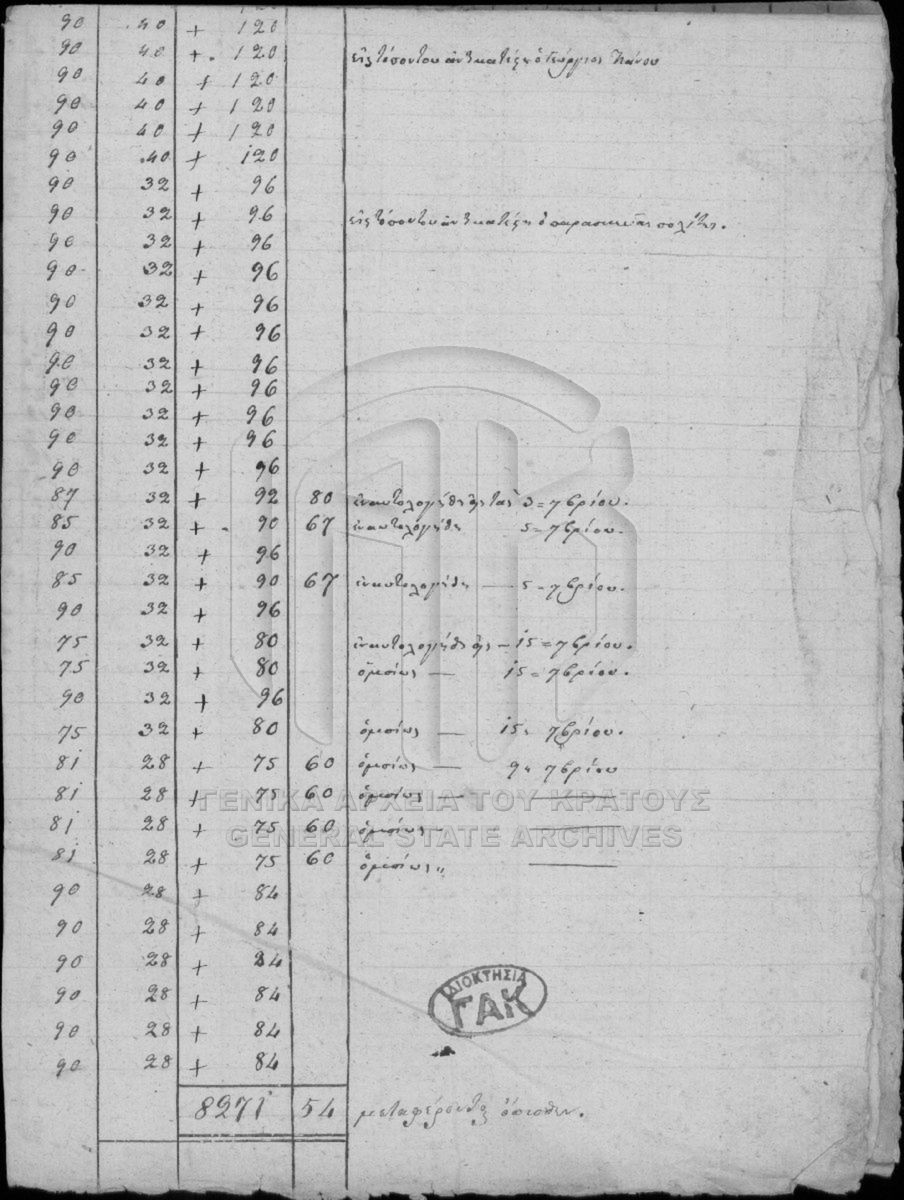 120
90 40 + 120
90 40 + 120 εἰς τόπον του ἀντικατέςη ὁ Γεώργιος Πάνου
90 40 + 120
90 40 + 120
90 40 + 120
90 40 + 120
90 32 + 96
90 32 + 96 εἰς τόπον του ἀντικατέςη ὁ
90 32 + 96
90 32 + 96
90 32 + 96
90 32 + 96
90 32 + 96
90 32 + 96
90 32 + 96
90 32 + 96
90 32 + 96
87 32 + 92 80 ἐναυτολογήθη εἰς τὰς 3 = 7βρίου.
85 32 + 90 67 ἐναυτολογήθη 5 = 7βρίου.
90 32 + 96
85 32 + 90 67 ἐναυτολογήθη — 5 = 7βρίου.
90 32 + 96
75 32 + 80 ἐναυτολογήθη εἰς — 15 = 7βρίου.
75 32 + 80 ὁμοίως — 15 = 7βρίου.
90 32 + 96
75 32 + 80 ὁμοίως — 15 = 7βρίου.
81 28 + 75 60 ὁμοίως — 9 = 7βρίου
81 28 + 75 60 ὁμοίως —
81 28 + 75 60 ὁμοίως —
81 28 + 75 60 ὁμοίως —
90 28 + 84
90 28 + 84
90 28 + 84
90 28 + 84
90 28 + 84
90 28 + 84
8271 54 μεταφέρονται ὄπισθεν.
ΓΕΝΙΚΑ ΑΡΧΕΙΑ ΤΟΥ ΚΡΑΤΟΥΣ
GENERAL STATE ARCHIVES
ΙΔΙΟΚΤΗΣΙΑ
ΓΑΚ